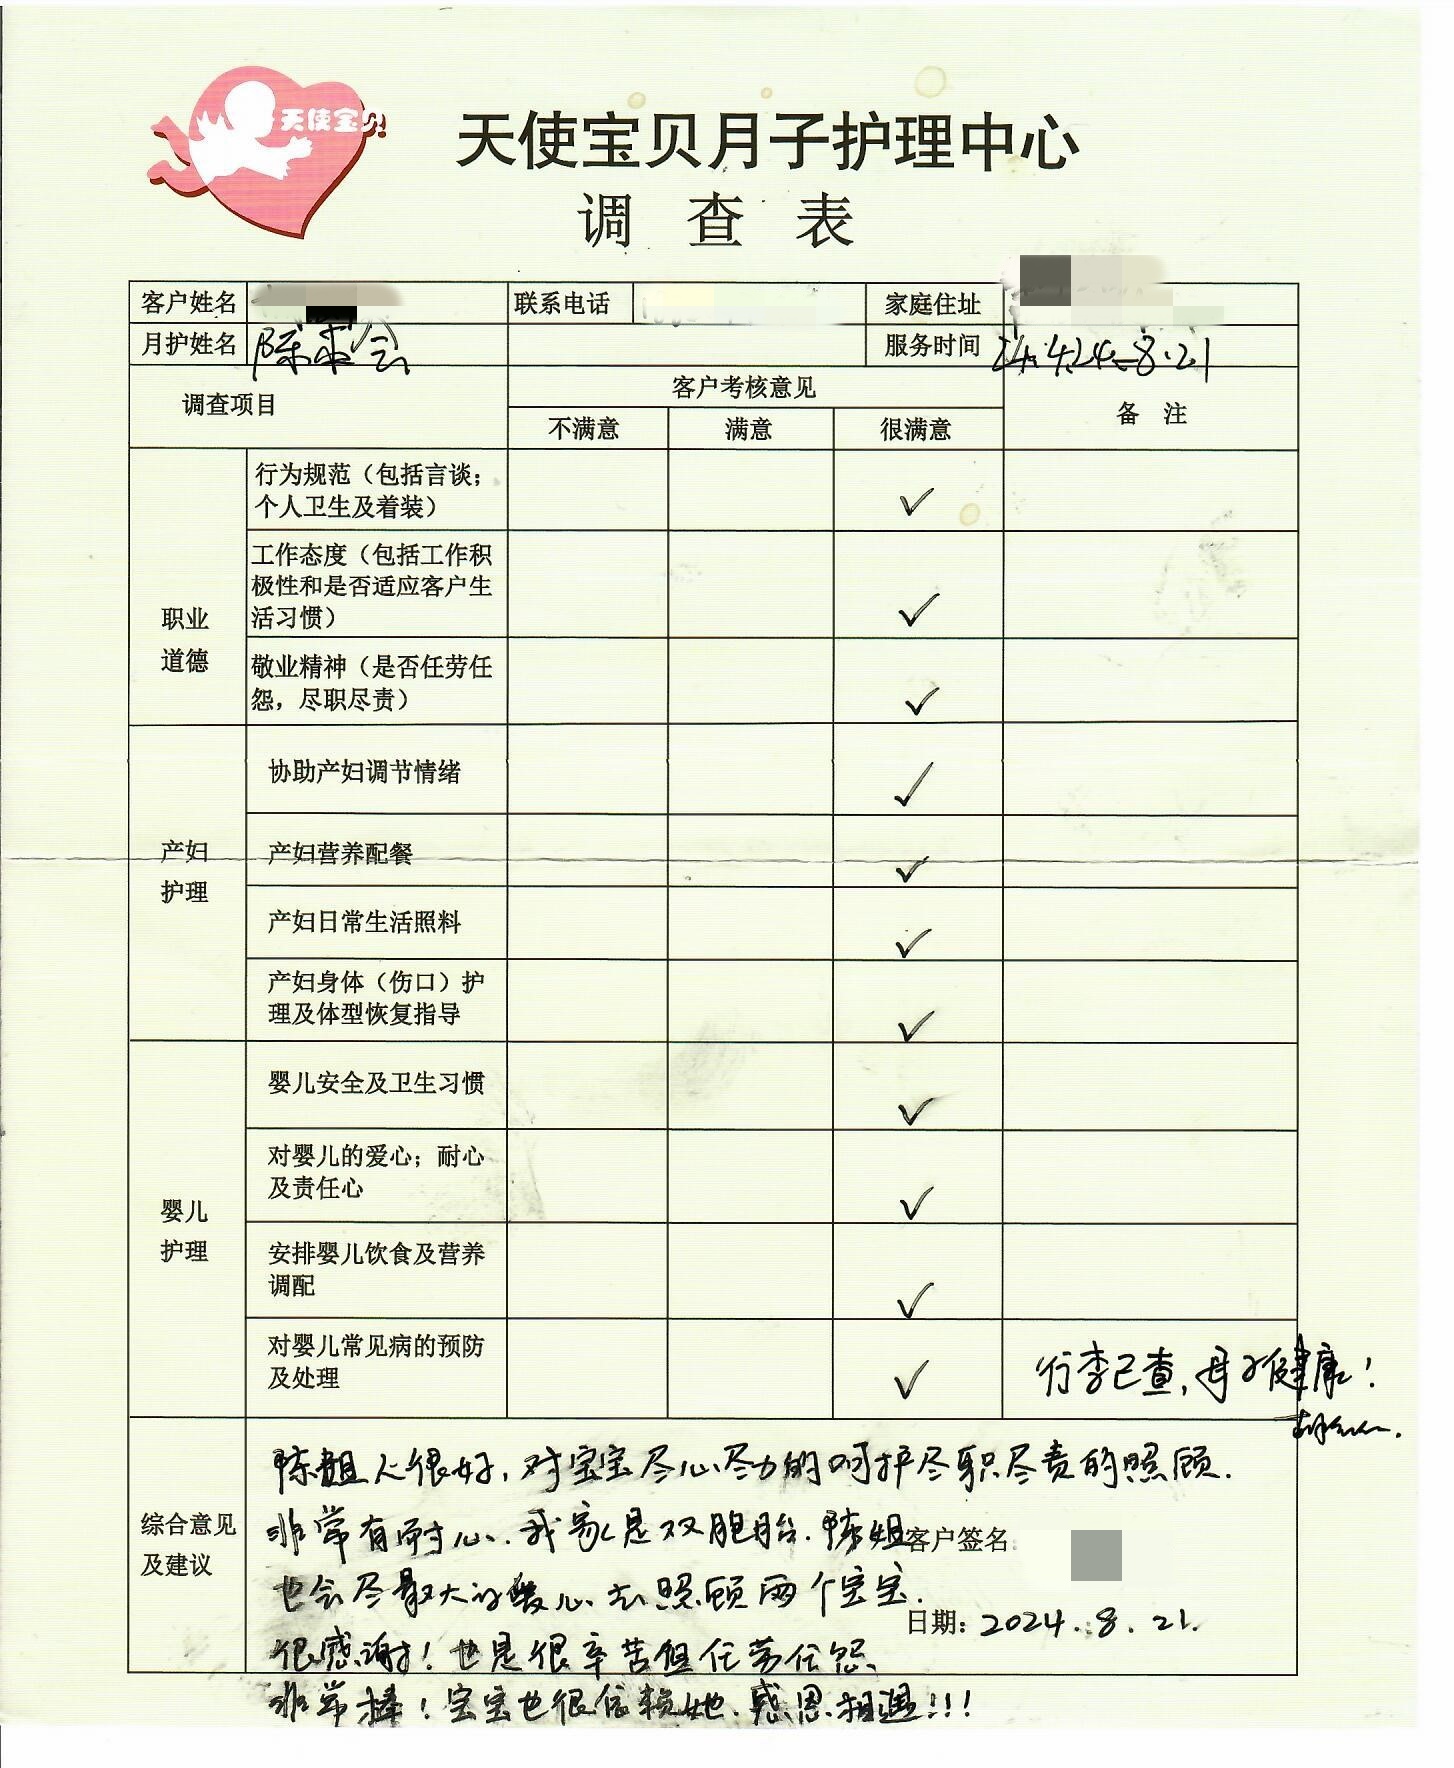 天使宝贝
天使宝贝月子护理中心
调 查 表
客户姓名 联系电话 家庭住址
月护姓名 陈荣会 服务时间 24.4.24-8.21
调查项目 客户考核意见 备 注
不满意 满意 很满意
职业
道德
行为规范（包括言谈；
个人卫生及着装） ✓
工作态度（包括工作积
极性和是否适应客户生
活习惯） ✓
敬业精神（是否任劳任
怨，尽职尽责） ✓
产妇
护理
协助产妇调节情绪 ✓
产妇营养配餐 ✓
产妇日常生活照料 ✓
产妇身体（伤口）护
理及体型恢复指导 ✓
婴儿
护理
婴儿安全及卫生习惯 ✓
对婴儿的爱心；耐心
及责任心 ✓
安排婴儿饮食及营养
调配 ✓
对婴儿常见病的预防
及处理 ✓
行李已查，母子健康！
综合意见
及建议
陈姐人很好，对宝宝尽心尽力的呵护尽职尽责的照顾.
非常有耐心.我家是双胞胎.陈姐
也会尽最大的暖心去照顾两个宝宝.
很感谢！也是很辛苦但任劳任怨
非常棒！宝宝也很信赖她.感恩相遇!!!
客户签名
日期：2024.8.21.